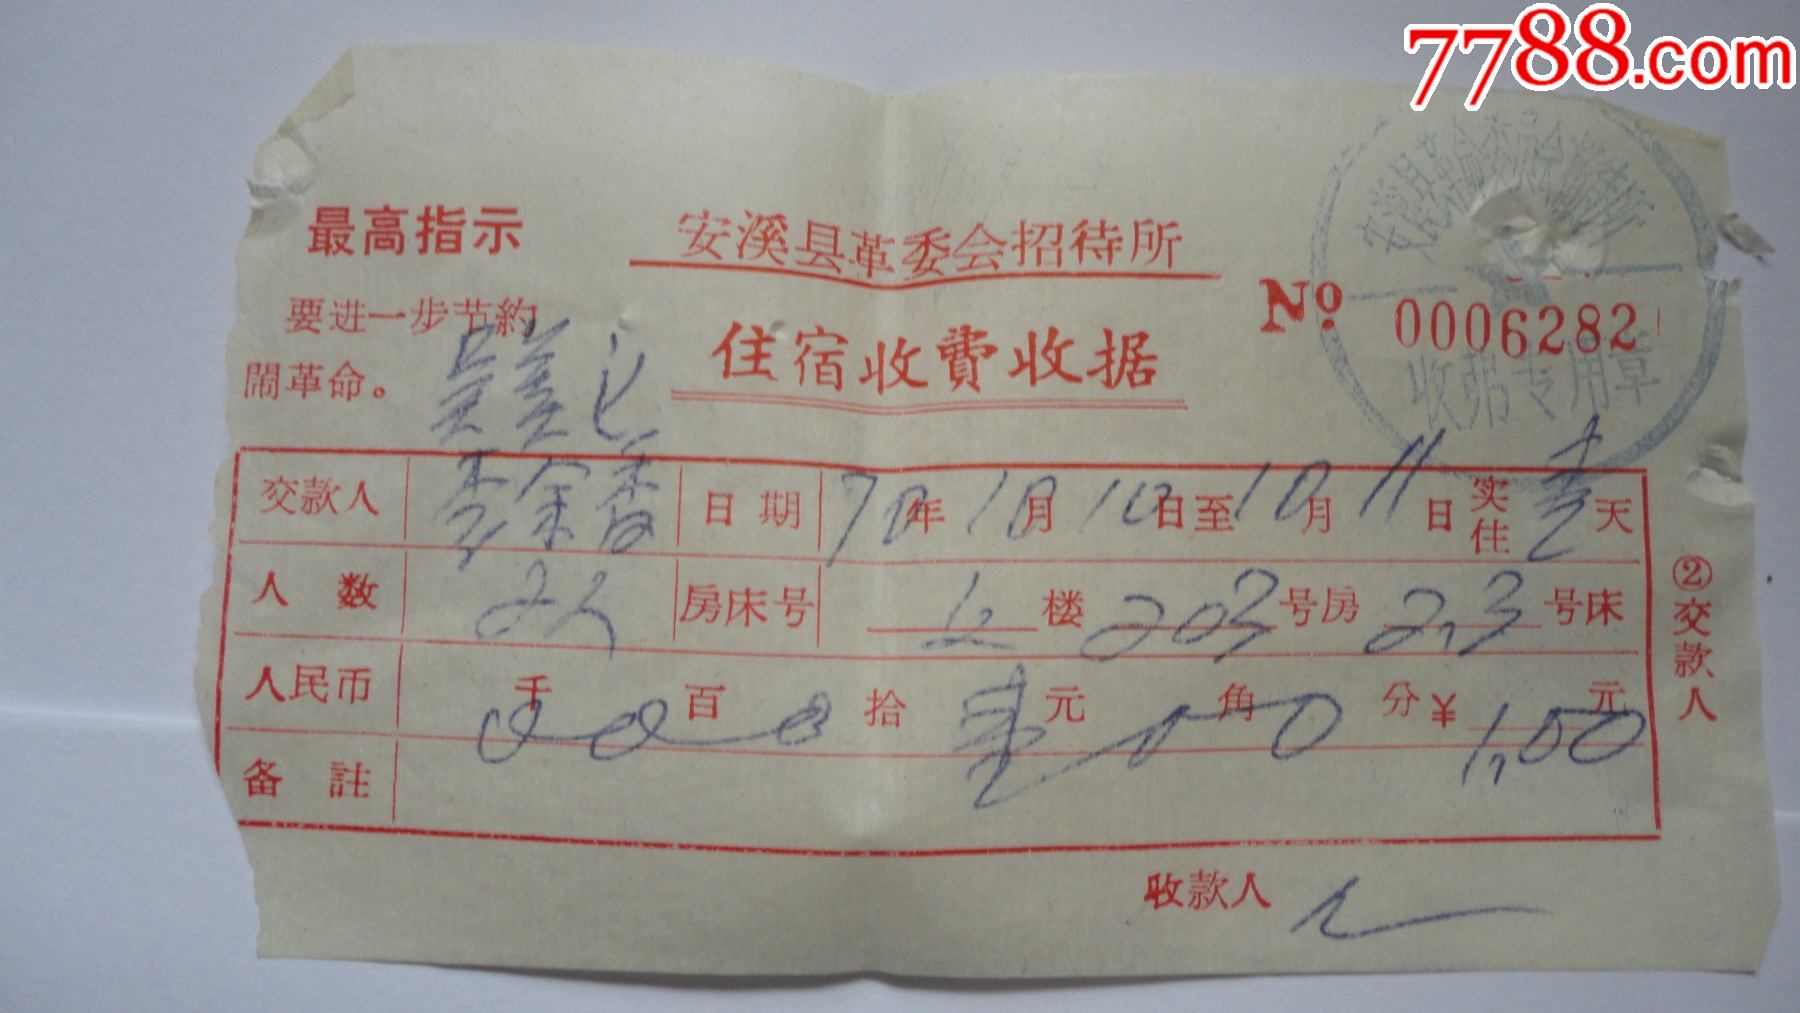 7788.com
安溪县革命委员会招待所
最高指示
安溪县革委会招待所
要进一步节約
闹革命。
住宿收費收据
No 0006282
收据专用章
交款人 日期 70年10月10日至10月11日 实住 壹 天
人数 2人 房床号 楼 203 号房 2,3 号床
人民币 0 千 0 百 0 拾 壹 元 0 角 0 分 ¥ 1,00 元
备註
②交款人
收款人